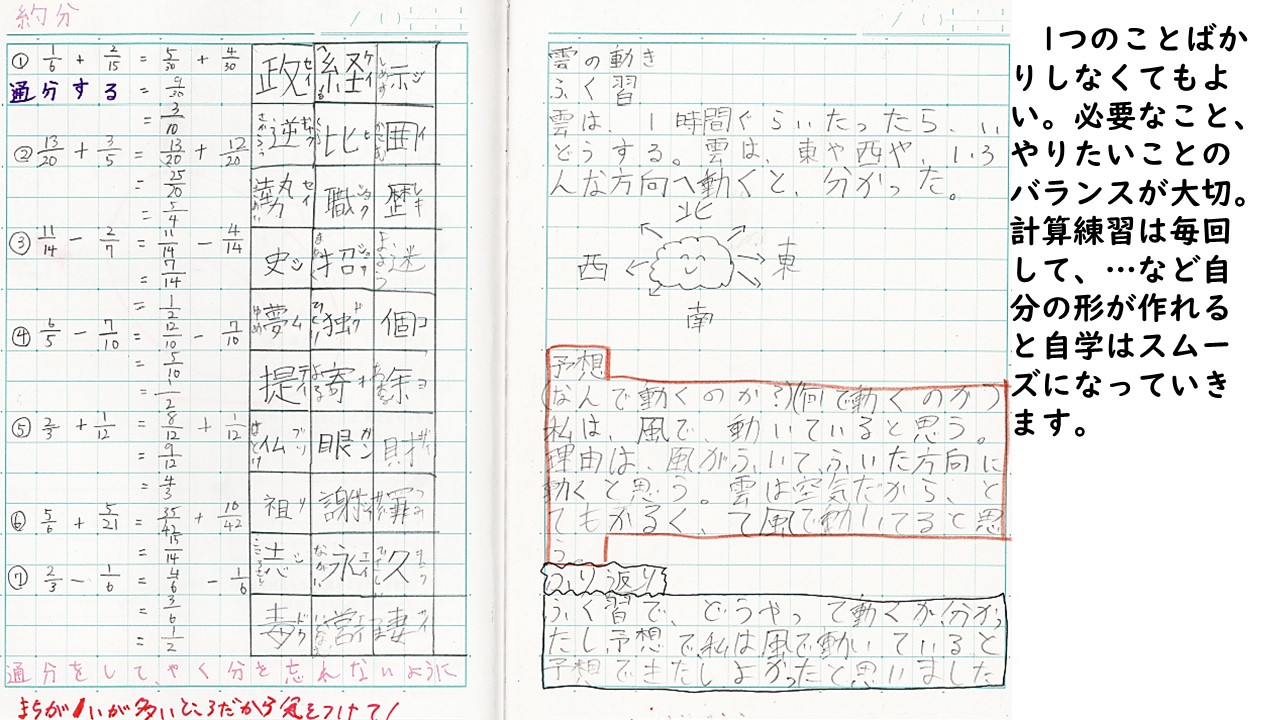 約分
① 1/6 + 2/15 = 5/30 + 4/30
通分する = 9/30
= 3/10
② 13/20 + 3/5 = 13/20 + 12/20
= 25/20
= 5/4
③ 11/14 - 2/7 = 11/14 - 4/14
= 7/14
= 1/2
④ 6/5 - 7/10 = 12/10 - 7/10
= 5/10
= 1/2
⑤ 2/3 + 1/12 = 8/12 + 1/12
= 9/12
= 4/3
⑥ 5/6 + 5/21 = 35/42 + 10/42
= 15/14
⑦ 2/3 - 1/6 = 4/6 - 1/6
= 3/6
= 1/2
政 セイ 経 ケイ 示 ジ しめす
逆 比 ヒ 囲 イ
勢 セイ 職 ショク 歴 レキ
史 シ 招 ショウ 迷
夢 ム ゆめ 独 ドク 個 コ
提 テイ 寄 キ 余 ヨ
仏 ブツ ほとけ 眼 ガン 財 ザイ
祖 ソ 謝 シャ
志 シ こころざし 永 エイ ながい 久
毒 ドク 営 エイ 妻 サイ
通分をして、やく分を忘れないように
まちがいが多いところだから気をつけて!
雲の動き
ふく習
雲は、1時間ぐらいたったら、い
どうする。雲は、東や西や、いろ
んな方向へ動くと、分かった。
北
西 東
南
予想
(なんで動くのか?)(何で動くのか)
私は、風で、動いていると思う。
理由は、風がふいて、ふいた方向に
動くと思う。雲は空気だから、と
てもかるく、て風で動いてると思
う。
ふり返り
ふく習で、どうやって動くか分かっ
たし予想で、私は風で動いていると
予想できたしよかったと思いました
1つのことばか
りしなくてもよ
い。必要なこと、
やりたいことの
バランスが大切。
計算練習は毎回
して、…など自
分の形が作れる
と自学はスムー
ズになっていき
ます。